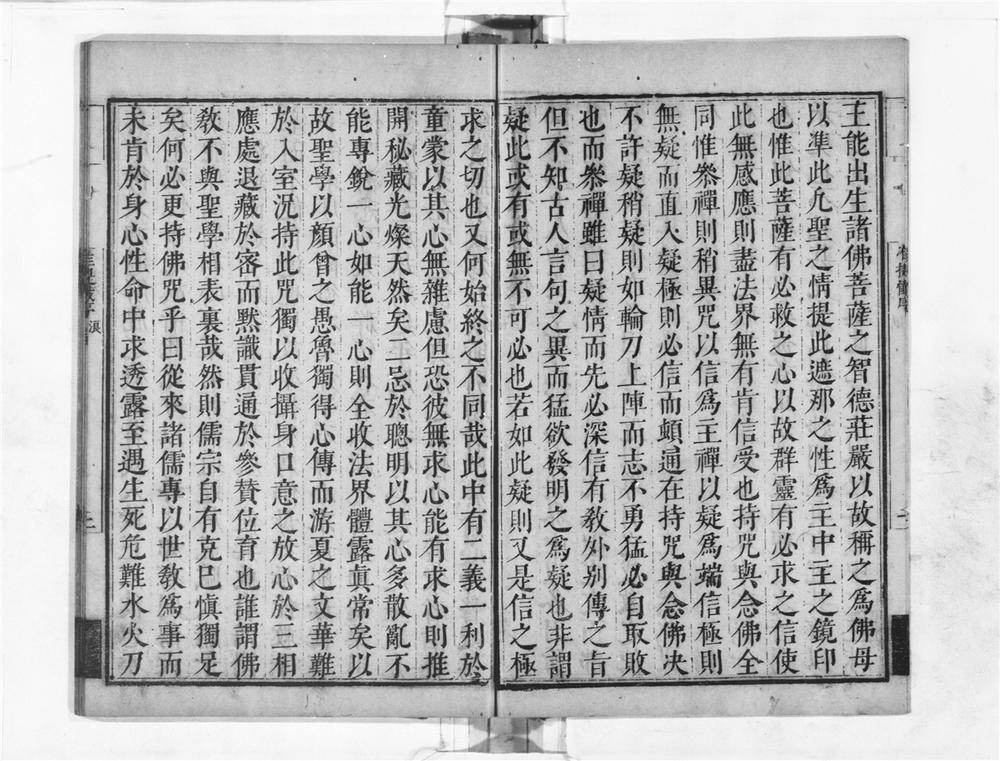 王能出生諸佛菩薩之智德莊嚴以故稱之為佛母
以準此凢聖之情提此遮那之性為主中主之鏡印
也惟此菩薩有必救之心以故群靈有必求之信使
此無感應則盡法界無有肯信受也持咒與念佛全
同惟叅禪則稍異咒以信爲主禪以疑爲端信極則
無疑而直入疑極則必信而頓通在持咒與念佛决
不許疑稍疑則如輪刀上陣而志不勇猛必自取敗
也而叅禪雖曰疑情而先必深信有敎外别傳之旨
但不知古人言句之異而猛欲發明之爲疑也非謂
疑此或有或無不可必也若如此疑則又是信之極
求之切也又何始終之不同哉此中有二義一利於
童蒙以其心無雜慮但恐彼無求心能有求心則推
開秘藏光燦天然矣二忌於聰明以其心多散亂不
能專銳一心如能一心則全收法界體露眞常矣以
故聖學以顔曾之愚魯獨得心傳而游夏之文華難
於入室況持此咒獨以收攝身口意之放心於三相
應處退藏於密而黙識貫通於參賛位育也誰謂佛
敎不與聖學相表裏哉然則儒宗自有克巳愼獨足
矣何必更持佛咒乎曰從來諸儒專以世敎爲事而
未肯於身心性命中求透露至遇生死危難水火刀